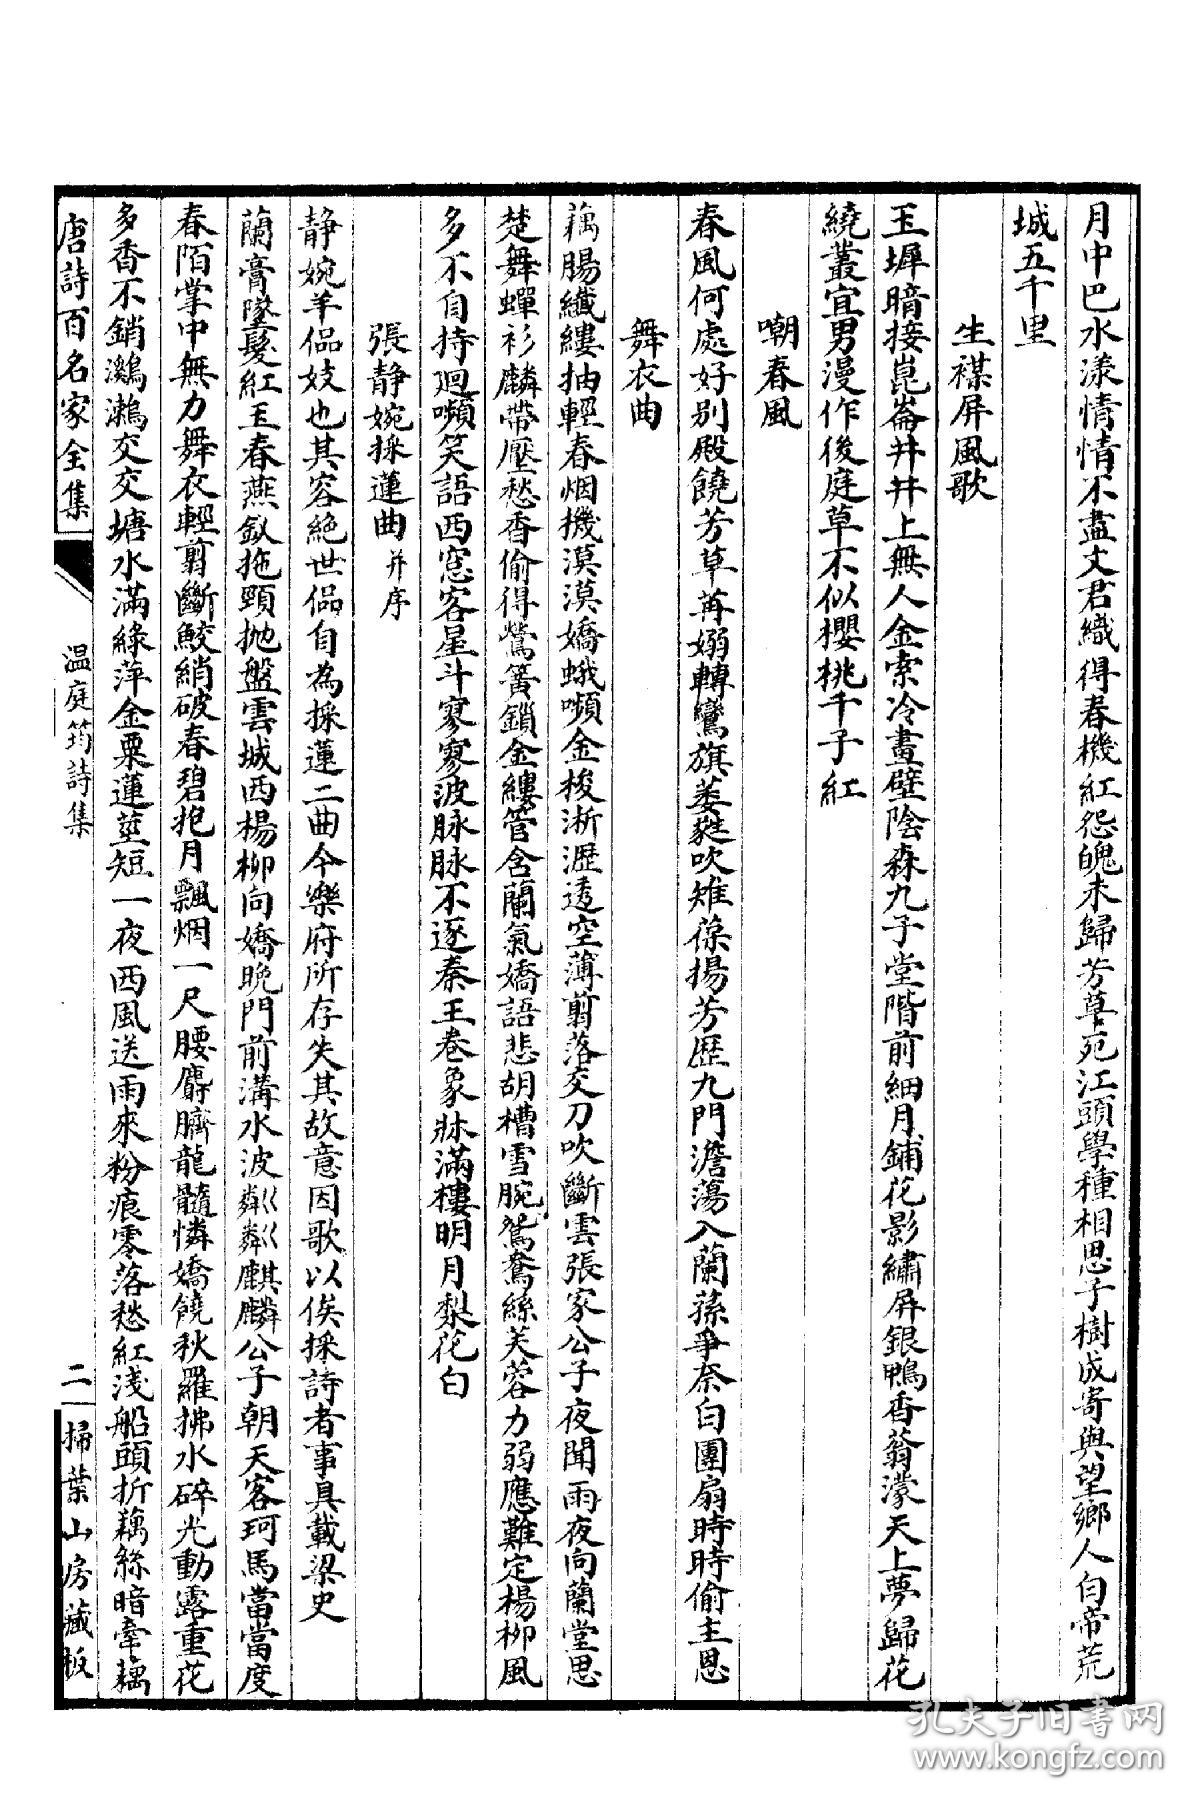 月中巴水漾情情不盡文君織得春機紅怨魄未歸芳草死江頭學種相思子樹成寄與望鄉人白帝荒
城五千里
生禖屏風歌
玉墀暗接崑崙井井上無人金索冷畫壁陰森九子堂階前細月鋪花影繡屏銀鴨香蓊濛天上夢歸花
繞叢宜男漫作後庭草不似櫻桃千子紅
嘲春風
春風何處好別殿饒芳草苒嫋轉鸞旗萎蕤吹雉葆揚芳歷九門澹蕩入蘭蓀爭奈白團扇時時偷主恩
舞衣曲
藕腸纖縷抽輕春烟機漠漠嬌蛾嚬金梭淅瀝透空薄剪落交刀吹斷雲張家公子夜聞雨夜向蘭堂思
楚舞蟬衫麟帶壓愁香偷得鶯簧鎖金縷管含蘭氣嬌語悲胡槽雪腕鴛鴦絲芙蓉力弱應難定楊柳風
多不自持廻嚬笑語西窓客星斗寥寥波脉脉不逐秦王卷象牀滿樓明月梨花白
張静婉採蓮曲并序
静婉羊侶妓也其容絕世侶自為採蓮二曲今樂府所存失其故意因歌以俟採詩者事具載梁史
蘭膏墜髮紅玉春燕釵拖頸拋盤雲城西楊柳向嬌晚門前溝水波粼粼麒麟公子朝天客珂馬當當度
春陌掌中無力舞衣輕剪斷鮫綃破春碧抱月飄烟一尺腰麝臍龍髓憐嬌饒秋羅拂水碎光動露重花
多香不銷鸂鶒交交塘水滿綠萍金粟蓮莖短一夜西風送雨來粉痕零落愁紅淺船頭折藕絲暗牽藕
唐詩百名家全集
温庭筠詩集
二
掃葉山房藏板
孔夫子旧書网
www.kongfz.com